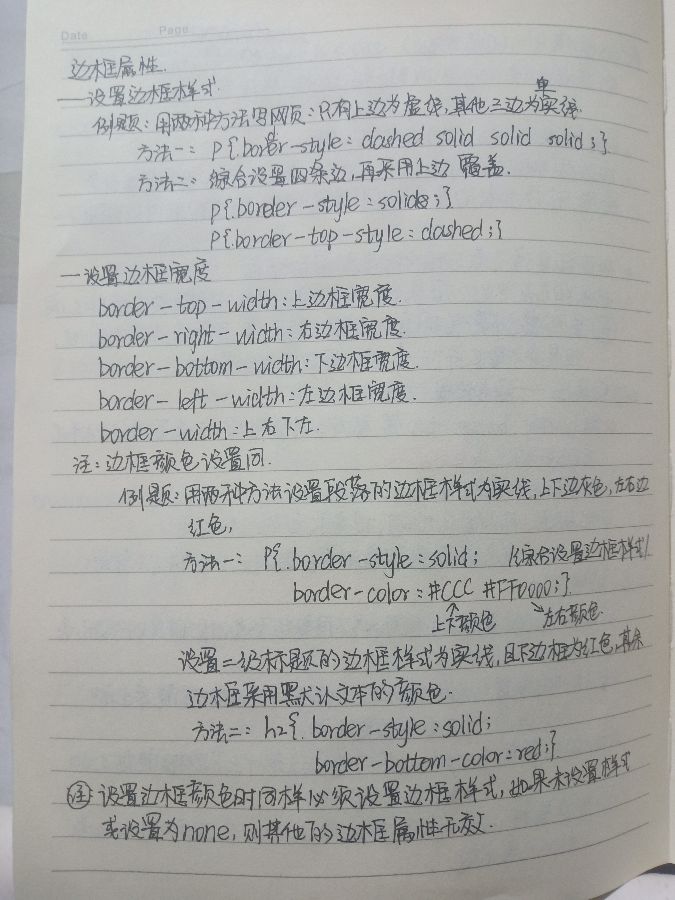 Date Page
边框属性.
——设置边框样式.
例题：用两种方法写网页：只有上边为虚线，其他三边为单实线.
方法一：P{border-style：dashed solid solid solid;}
方法二：综合设置四条边，再采用上边覆盖.
P{border-style：solid;}
P{border-top-style：dashed;}
一设置边框宽度
border-top-width：上边框宽度.
border-right-width：右边框宽度.
border-bottom-width：下边框宽度.
border-left-width：左边框宽度.
border-width：上右下左.
注：边框颜色设置同.
例题：用两种方法设置段落的边框样式为实线，上下边灰色，左右边
红色，
方法一：P{.border-style：solid； /综合设置边框样式/
border-color：#CCC #FF0000;}
上下颜色 左右颜色.
设置二级标题的边框样式为实线，且下边框为红色，其余
边框采用黑默认文本的颜色.
方法二：h2{.border-style：solid；
border-bottom-color：red;}
注 设置边框颜色时同样必须设置边框样式，如果未设置样式
或设置为none，则其他下的边框属性无效.